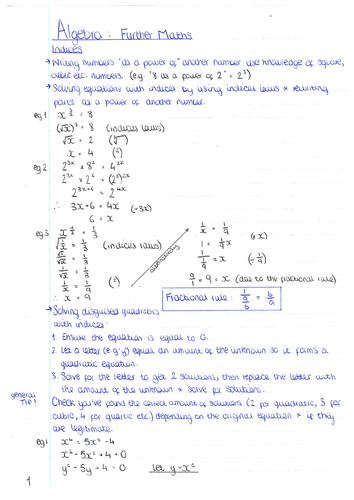 Algebra : Further Maths
Indices
→ Writing numbers "as a power of" another number use knowledge of square,
cubic etc. numbers. (e.g. '8 as a power of 2' = 2³)
→ Solving equations with indices: by using indices laws & rewriting
parts as a power of another number.
eg 1 x^(3/2) = 8
(√x)³ = 8 (indices laws)
√x = 2 (∛)
x = 4 (²)
eg 2 2^(3x) × 8² = 4^(2x)
2^(3x) × 2⁶ = (2²)^(2x)
2^(3x+6) = 2^(4x)
∴ 3x+6 = 4x (-3x)
6 = x
eg 3
= 1/3 (indices laws)
1/√x = 1/3
1/x = 1/9 (²)
∴ x = 9
1/x = 1/9 (×x)
1 = 1/9 x
= x (÷1/9)
9/1 = 9 = x (due to the fractional rule)
Fractional rule : 1/(a/b) = b/a
→ Solving disguised quadratics
with indices:
1. Ensure the equation is equal to 0.
2. Let a letter (e.g. y) equal an amount of the unknown so it forms a
quadratic equation.
3. Solve for the letter to get 2 solutions, then replace the letter with
the amount of the unknown & solve for solutions.
general TIP!
Check you've found the correct amount of solutions (2 for quadratic, 3 for
cubic, 4 for quartic etc.) depending on the original equation & if they
are legitimate.
eg 1 x⁴ = 5x² - 4
x⁴ - 5x² + 4 = 0
y² - 5y + 4 = 0 let y = x²
1